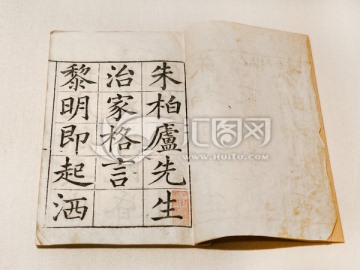 朱柏廬先生
治家格言
黎明即起洒
汇图网
www.huitu.com